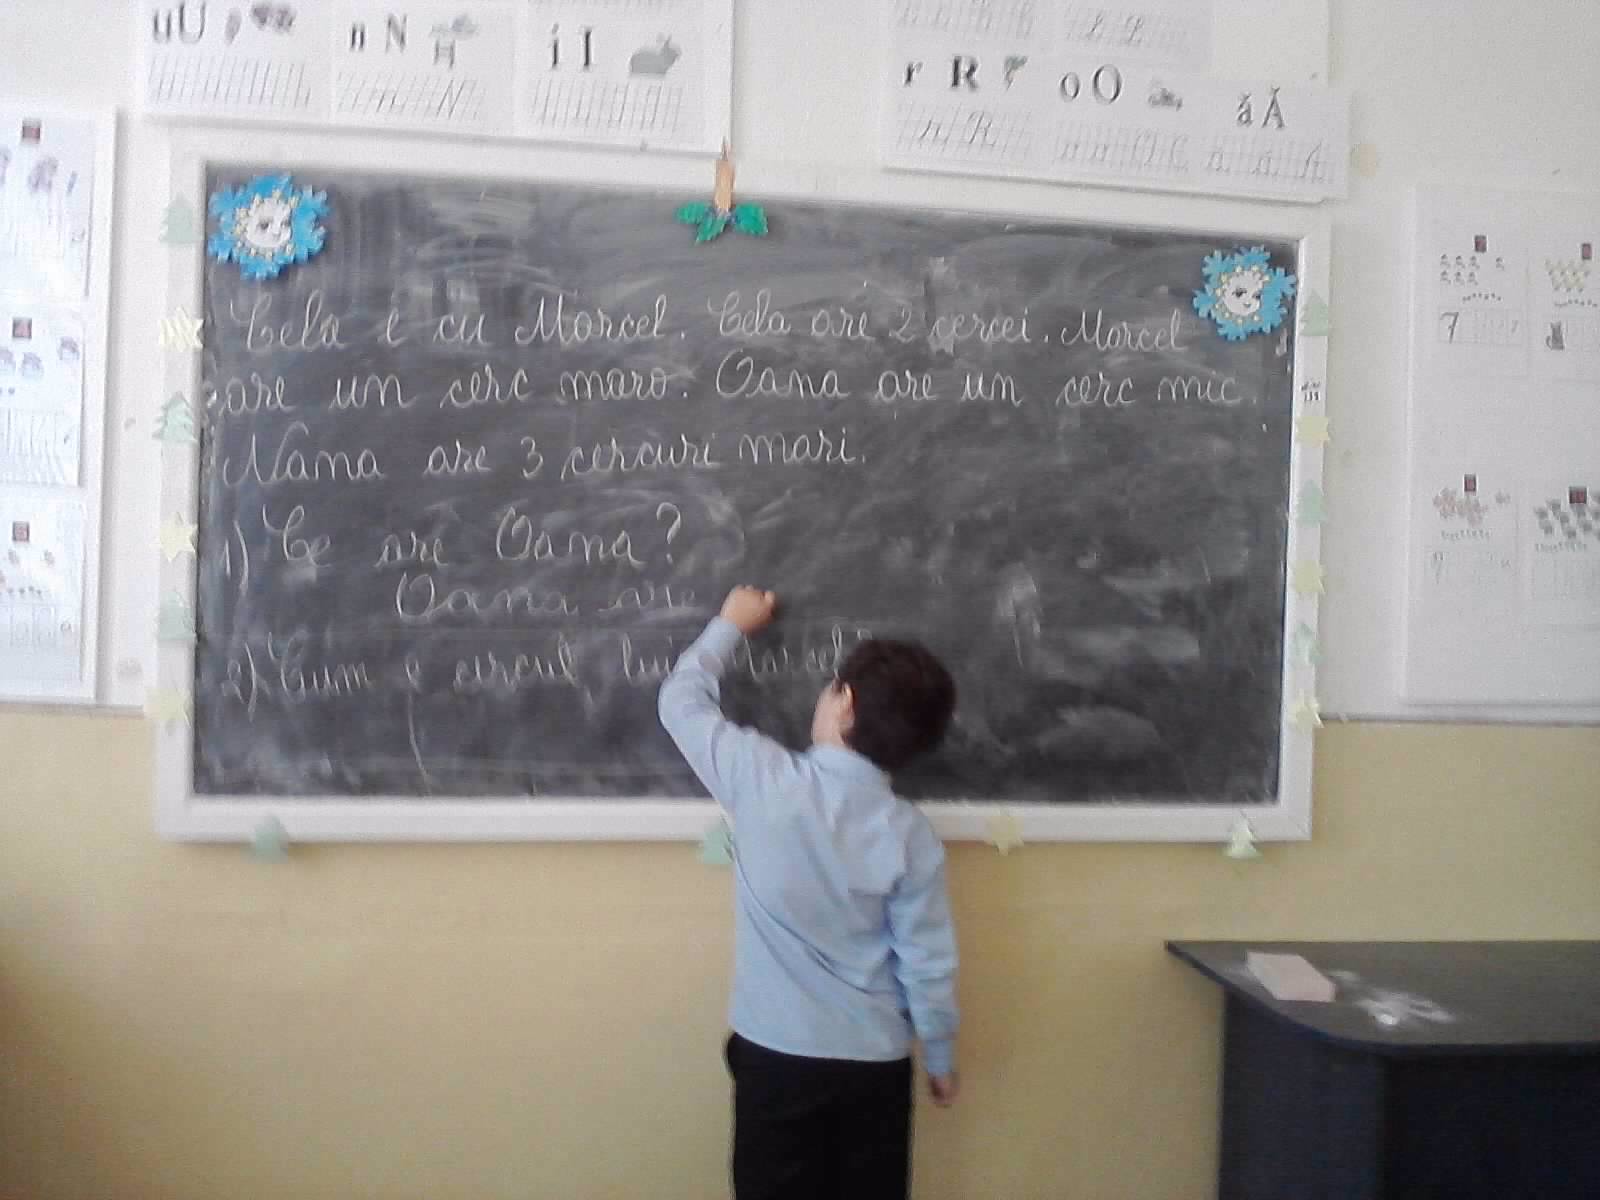 u U
n N
i I
r R
o O
ă Ă
Cela e cu Marcel. Cela are 2 cercei. Marcel
are un cerc maro. Oana are un cerc mic.
Nana are 3 cercuri mari.
1) Ce are Oana?
Oana are
2) Cum e cercul lui Marcel?
7